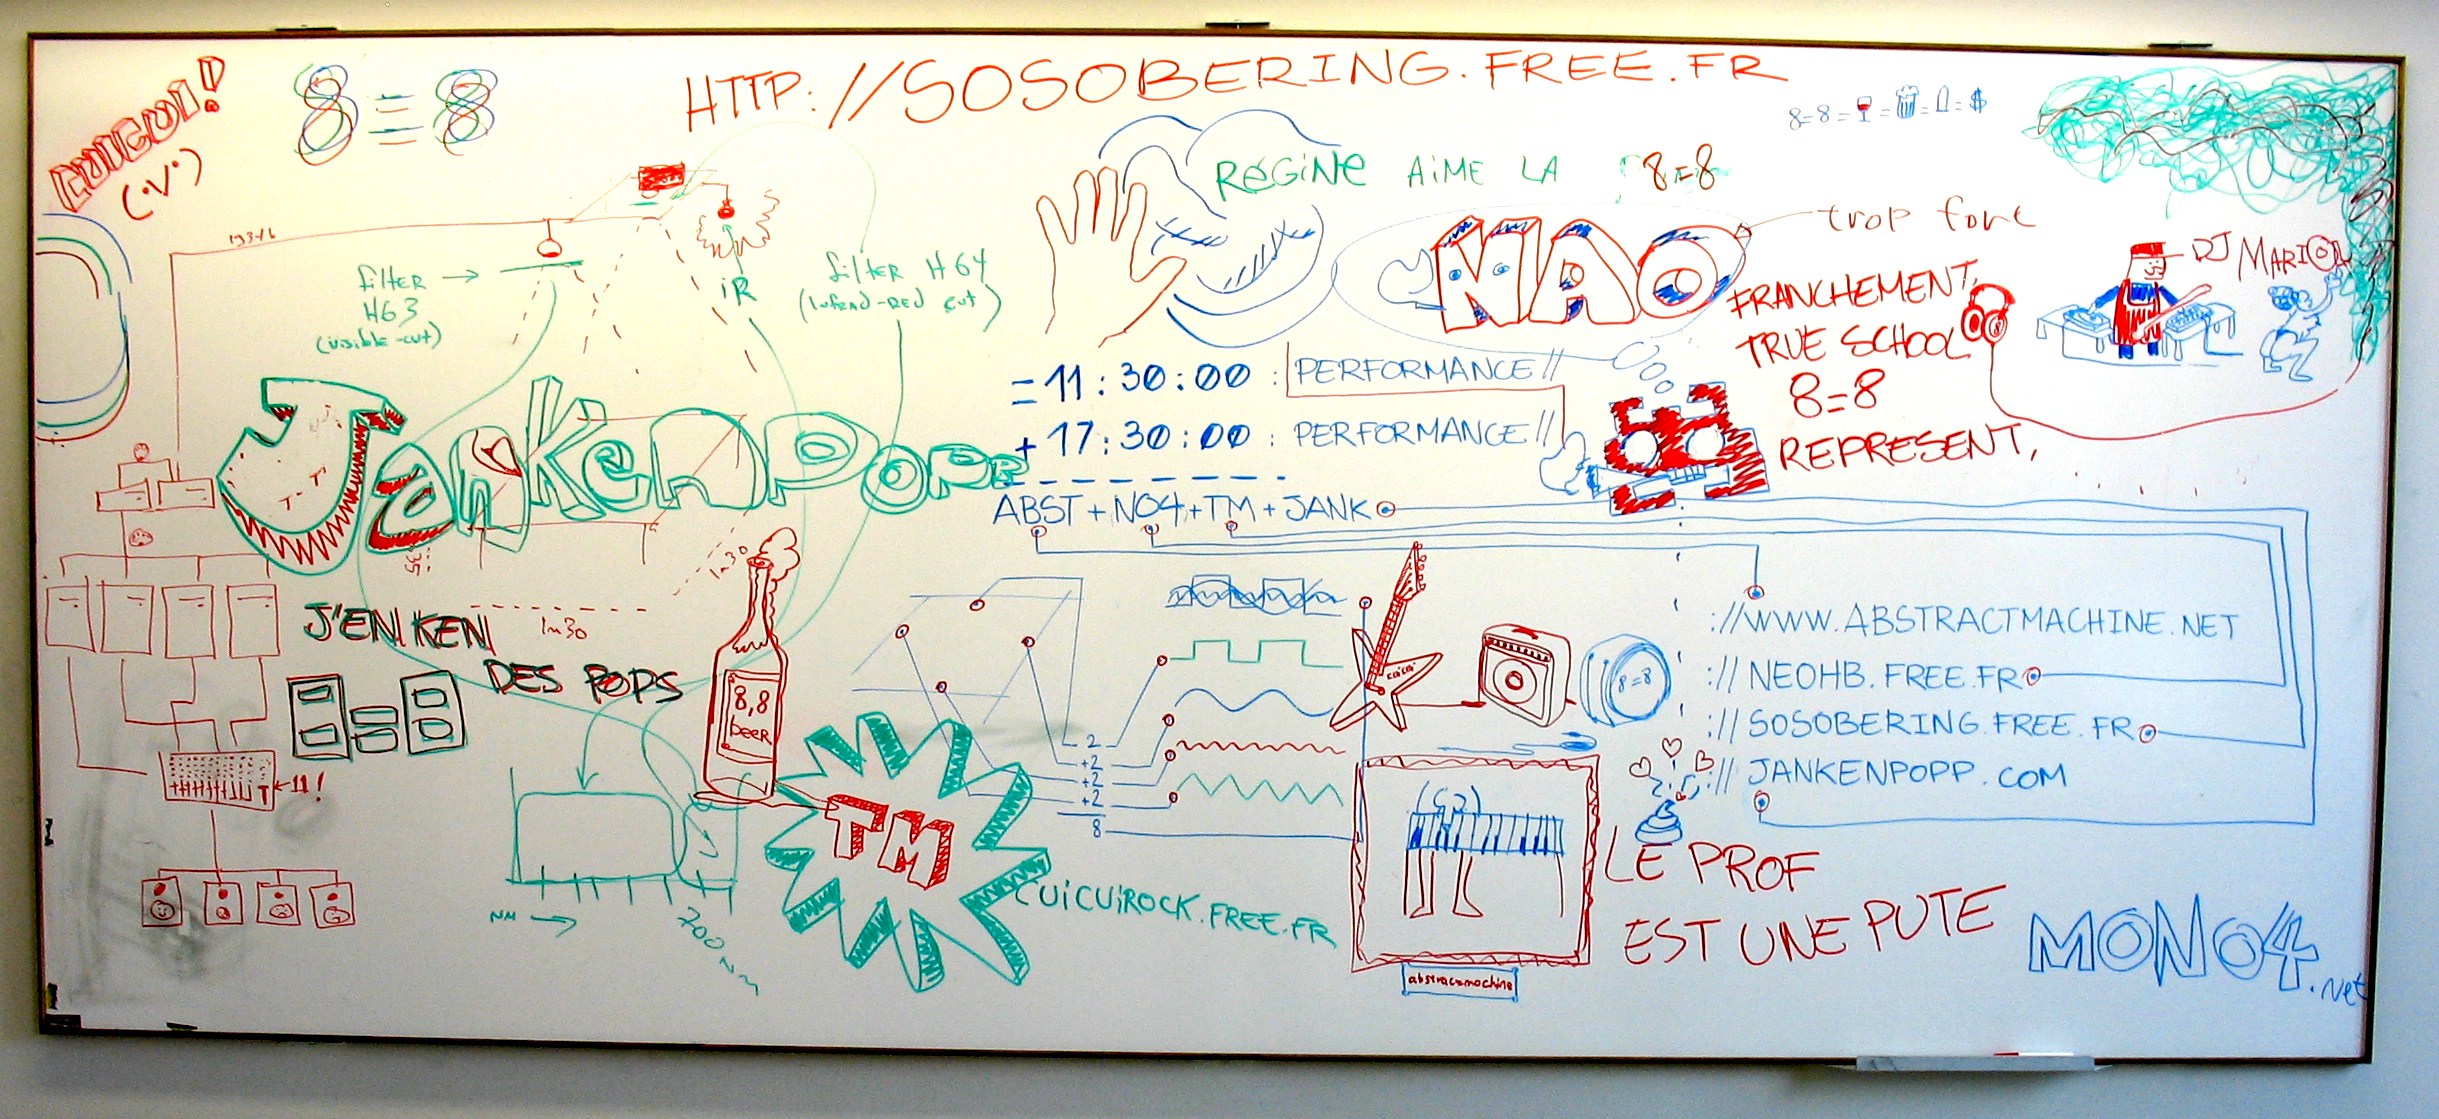 CUICUI!
(·V·)
8=8
HTTP://SOSOBERING.FREE.FR
8=8= = = =$
RéGiNE AiME LA 8=8
NAO
trop fort
FRANCHEMENT,
TRUE SCHOOL
8=8
REPRESENT,
DJ MARIO
filter
H63
(visible-cut)
iR
filter H64
JankenPopp
=11:30:00 : PERFORMANCE//
+17:30:00 : PERFORMANCE//
ABST + NO4 + TM + JANK
1m30
1m30
J'EN KEN
DES POPS
8=8
11!
8,8
beer
TM
NM
700 nm
CUiCUiROCK.FREE.FR
2
+2
+2
+2
8
8=8
://WWW.ABSTRACTMACHINE.NET
://NEOHB.FREE.FR
://SOSOBERING.FREE.FR
://JANKENPOPP.COM
abstractmachine
LE PROF
EST UNE PUTE
MONO4.net